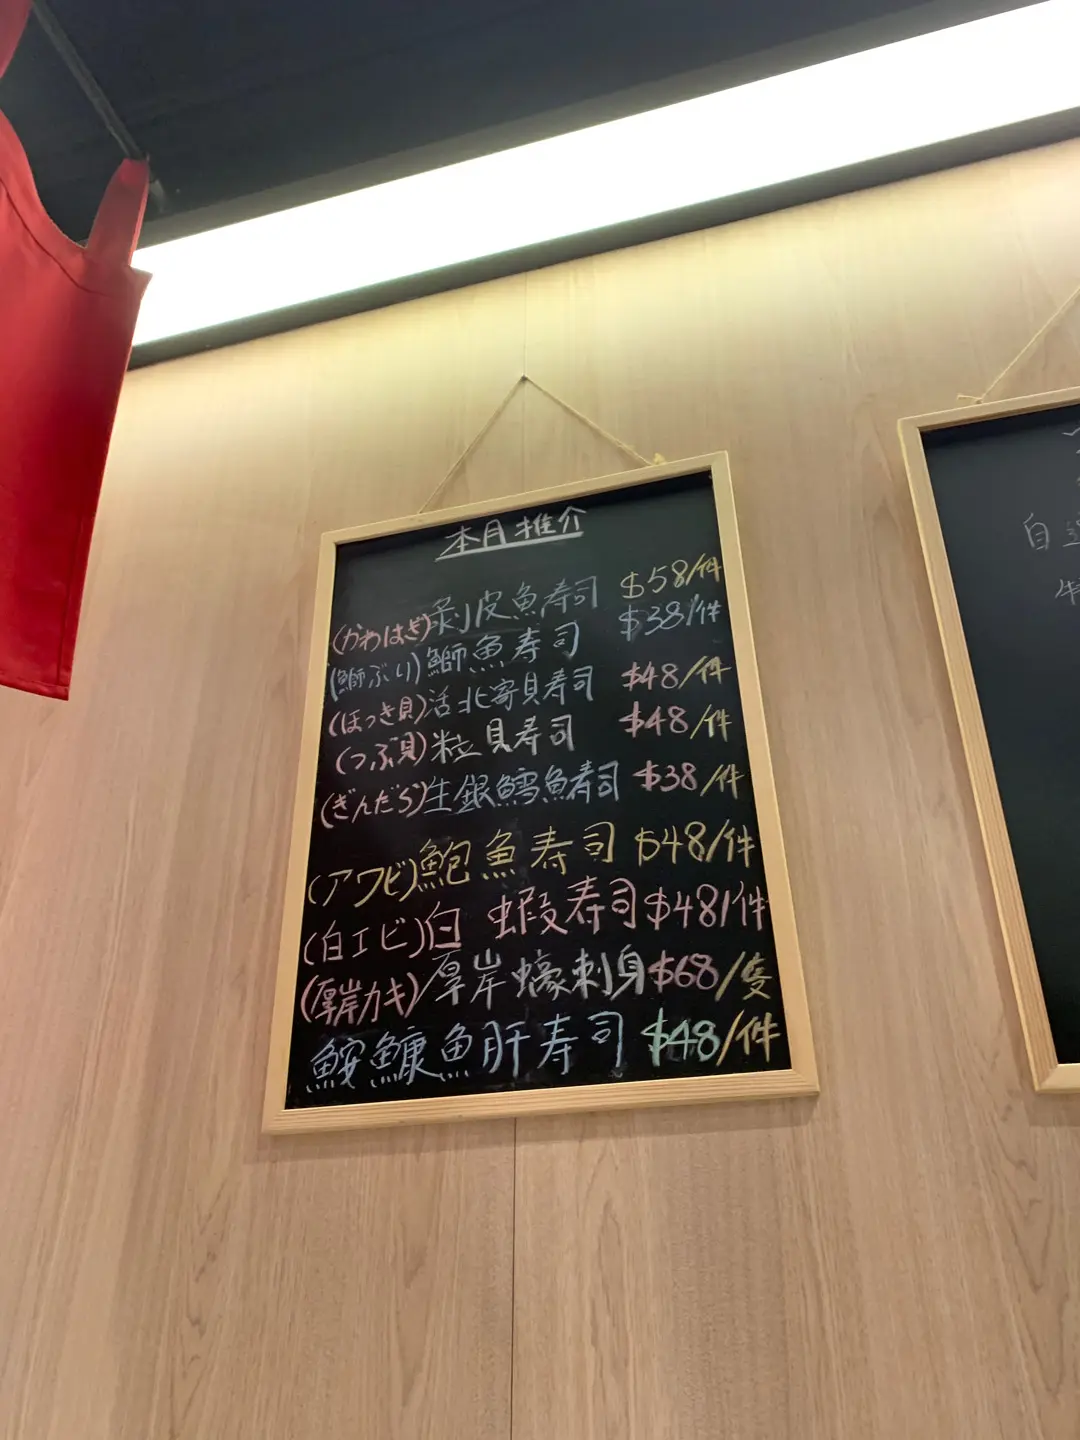 本月推介
(かわはぎ)剥皮魚寿司 $58/件
(鰤ぶり)鰤魚寿司 $38/件
(ほっき貝)活北寄貝寿司 $48/件
(つぶ貝)粒貝寿司 $48/件
(ぎんだら)生銀鱈魚寿司 $38/件
(アワビ)鮑魚寿司 $48/件
(白エビ)白蝦寿司 $48/件
(厚岸カキ)厚岸蠔刺身 $68/隻
鮟鱇魚肝寿司 $48/件
自